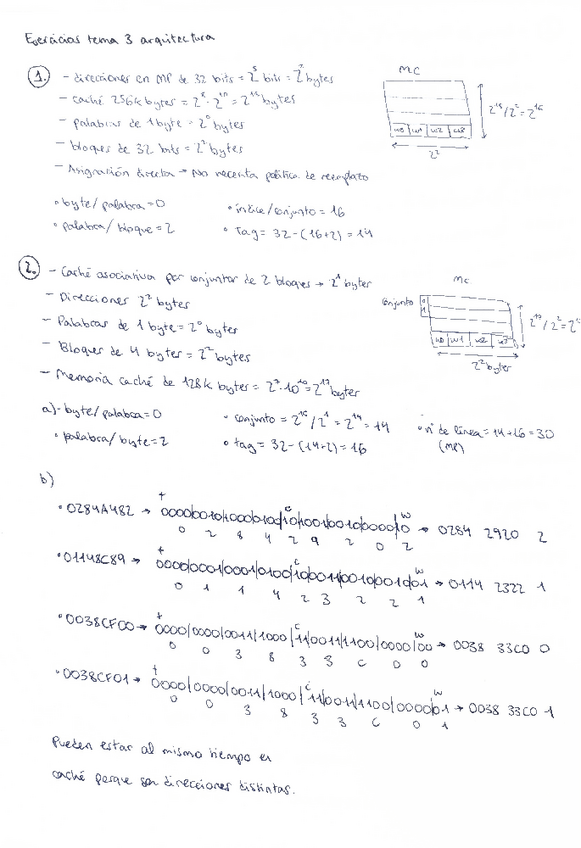 Ejercicios tema 3 arquitectura
1. - direcciones en MP de 32 bits = 2⁵ bits = 2² bytes
- caché 256k bytes = 2⁸ · 2¹⁰ = 2¹⁸ bytes
- palabras de 1 byte = 2⁰ bytes
- bloques de 32 bits = 2² bytes
- Asignación directa → No necesita política de reemplazo
MC
2¹⁸/2² = 2¹⁶
w0 w1 w2 w3
2²
• byte/palabra = 0
• índice/conjunto = 16
• palabra/bloque = 2
• Tag = 32 - (16+2) = 14
2. - Caché asociativa por conjuntos de 2 bloques → 2¹ bytes
- Direcciones 2² bytes
- Palabras de 1 byte = 2⁰ bytes
- Bloques de 4 bytes = 2² bytes
- Memoria caché de 128k bytes = 2⁷ · 10¹⁰ = 2¹⁷ bytes
MC
conjunto 0
1
w0 w1 w2 w3
2² bytes
2¹⁷/2² = 2¹⁵
a) • byte/palabra = 0
• conjunto = 2¹⁵/2¹ = 2¹⁴ = 14
• nº de línea = 14+16 = 30
(MP)
• palabra/byte = 2
• tag = 32 - (14+2) = 16
b)
t c w
• 0284A482 → 0000|0010|1000|0100|10|1001|0010|0000|10 → 0284 2920 2
0 2 8 4 2 9 2 0 2
t c w
• 01148C89 → 0000|0001|0001|0100|10|0011|0010|0010|01 → 0114 2322 1
0 1 1 4 2 3 2 2 1
t c w
• 0038CF00 → 0000|0000|0011|1000|11|0011|1100|0000|00 → 0038 33C0 0
0 0 3 8 3 3 C 0 0
t c w
• 0038CF01 → 0000|0000|0011|1000|11|0011|1100|0000|01 → 0038 33C0 1
0 0 3 8 3 3 C 0 1
Pueden estar al mismo tiempo en
caché porque son direcciones distintas.